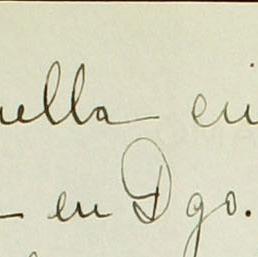 uella en
en Dgo.